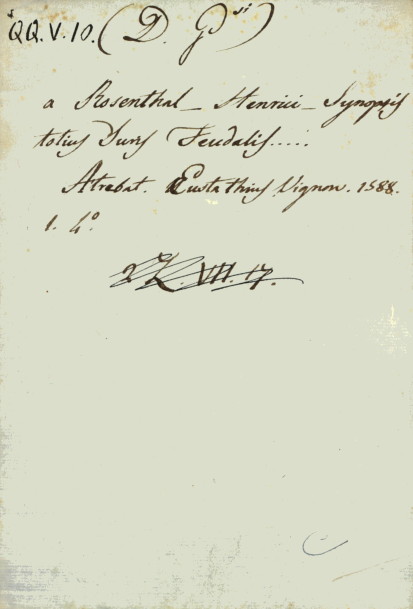 QQ.V.10. (D. Gd si)
a Rosenthal_ Henrici_ Synopsis
totius Juris Feudalis.....
Atrebat. Eustathius Vignon. 1588.
1. 4º
VII. 17.